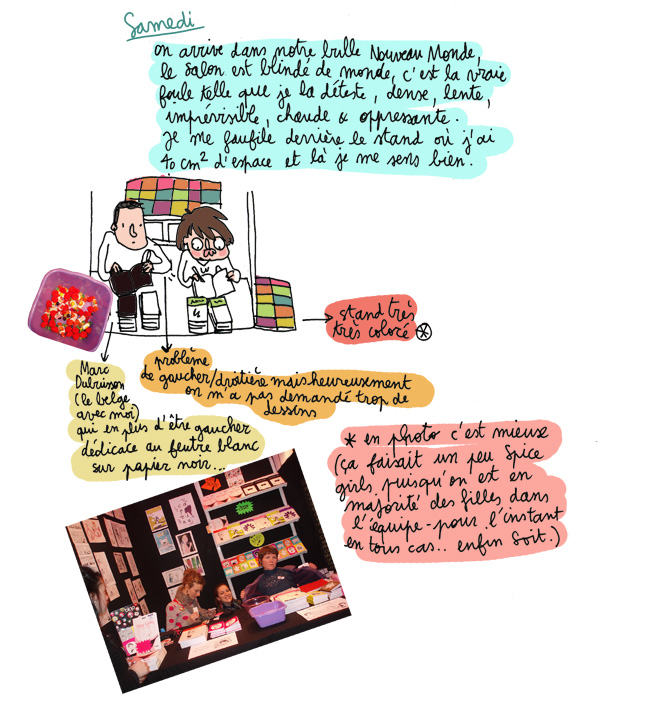 Samedi
on arrive dans notre bulle Nouveau Monde,
le salon est blindé de monde, c'est la vraie
foule telle que je la déteste, dense, lente,
imprévisible, chaude & oppressante.
Je me faufile derrière le stand où j'ai
40 cm² d'espace et là je me sens bien.
stand très
très coloré *
problème
de gaucher/droitière mais heureusement
on m'a pas demandé trop de
dessins
Marc
Dubuisson
(le belge
avec moi)
qui en plus d'être gaucher
dédicace au feutre blanc
sur papier noir...
* en photo c'est mieux
(ça faisait un peu Spice
girls puisqu'on est en
majorité des filles dans
l'équipe - pour l'instant
en tous cas.. enfin soit.)